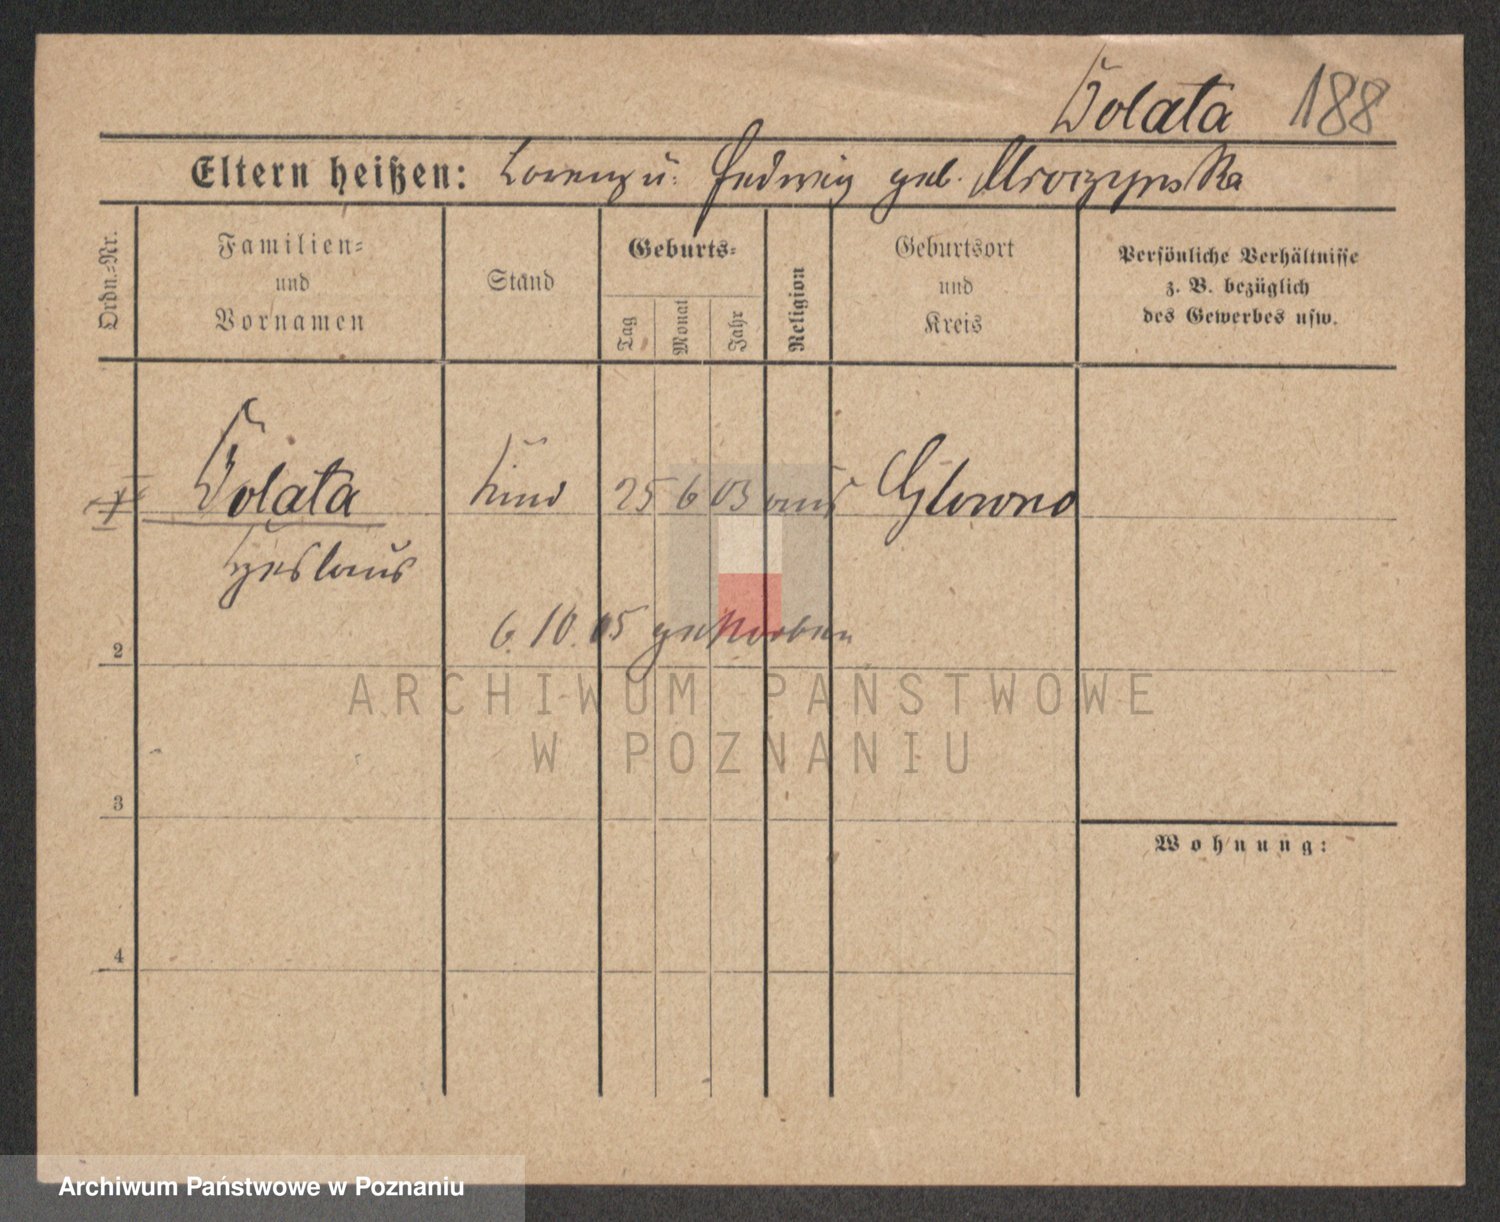 Dolata 188
Eltern heißen: Lorenz u. Hedwig geb. Mroczynska
Ordn.-Nr.
Familien-
und
Vornamen
Stand
Geburts-
Tag
Monat
Jahr
Religion
Geburtsort
und
Kreis
Persönliche Verhältnisse
z. B. bezüglich
des Gewerbes usw.
Dolata Kind 25 6 03 aus Glowno
6. 10. 05 gestorben
2
3
4
Wohnung:
ARCHIWUM PAŃSTWOWE
W POZNANIU
Archiwum Państwowe w Poznaniu